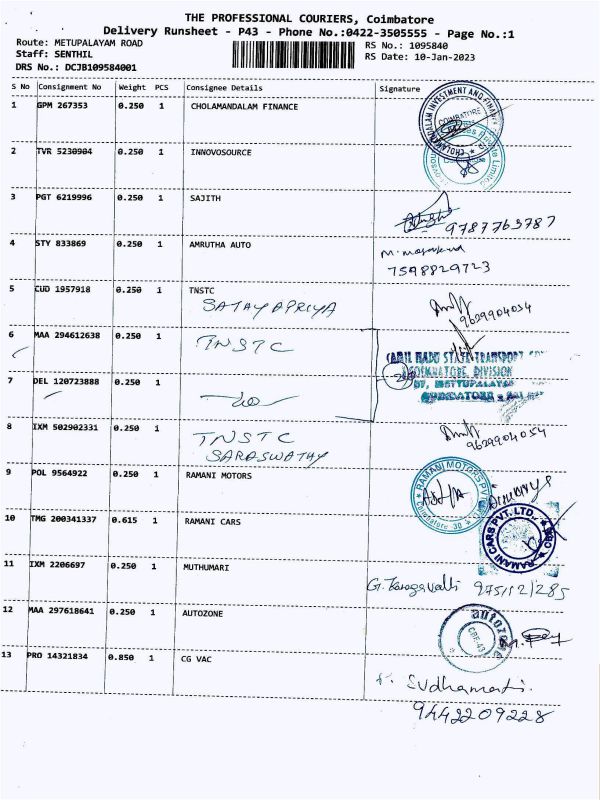 THE PROFESSIONAL COURIERS, Coimbatore
Delivery Runsheet - P43 - Phone No.:0422-3505555 - Page No.:1
Route: METUPALAYAM ROAD
RS No.: 1095840
Staff: SENTHIL
RS Date: 10-Jan-2023
DRS No.: DCJB109584001
S No Consignment No Weight PCS Consignee Details Signature
1 GPM 267353 0.250 1 CHOLAMANDALAM FINANCE
CHOLAMANDALAM INVESTMENT AND FINANCE
COIMBATORE
2 TVR 5230904 0.250 1 INNOVOSOURCE
Private Limited
3 PGT 6219996 0.250 1 SAJITH
9787763787
4 STY 833869 0.250 1 AMRUTHA AUTO
7598829723
5 CUD 1957918 0.250 1 TNSTC
SATHYAPRIYA
9629904054
6 MAA 294612638 0.250 1 TNSTC
TAMIL NADU STATE TRANSPORT
COIMBATORE DIVISION
37, METTUPALAYAM
COIMBATORE
7 DEL 120723888 0.250 1 -do-
8 IXM 502902331 0.250 1 TNSTC
SARASWATHY
9629904054
9 POL 9564922 0.250 1 RAMANI MOTORS
RAMANI MOTORS PVT
Coimbatore 30
10 TMG 200341337 0.615 1 RAMANI CARS
RAMANI CARS PVT. LTD.
CBE
11 IXM 2206697 0.250 1 MUTHUMARI
12 MAA 297618641 0.250 1 AUTOZONE
autozone
CBE-43
13 PRO 14321834 0.850 1 CG VAC
Sudhamati
9442209228